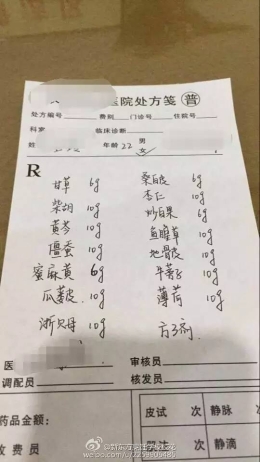 医院处方笺 普
处方编号 费别 门诊号 住院号
科 临床诊断
姓 年龄 22 男 女
R
甘草 6g 桑白皮 6g
柴胡 10g 杏仁 10g
黄芩 10g 炒白果 6g
僵蚕 10g 鱼腥草 10g
蜜麻黄 6g 地骨皮 10g
瓜蒌皮 10g 牛蒡子 10g
浙贝母 10g 薄荷 10g
方3剂
医
审核员
调配员 核发员
药品金额: 皮试 次 静脉 次
收费员 次 静滴 次